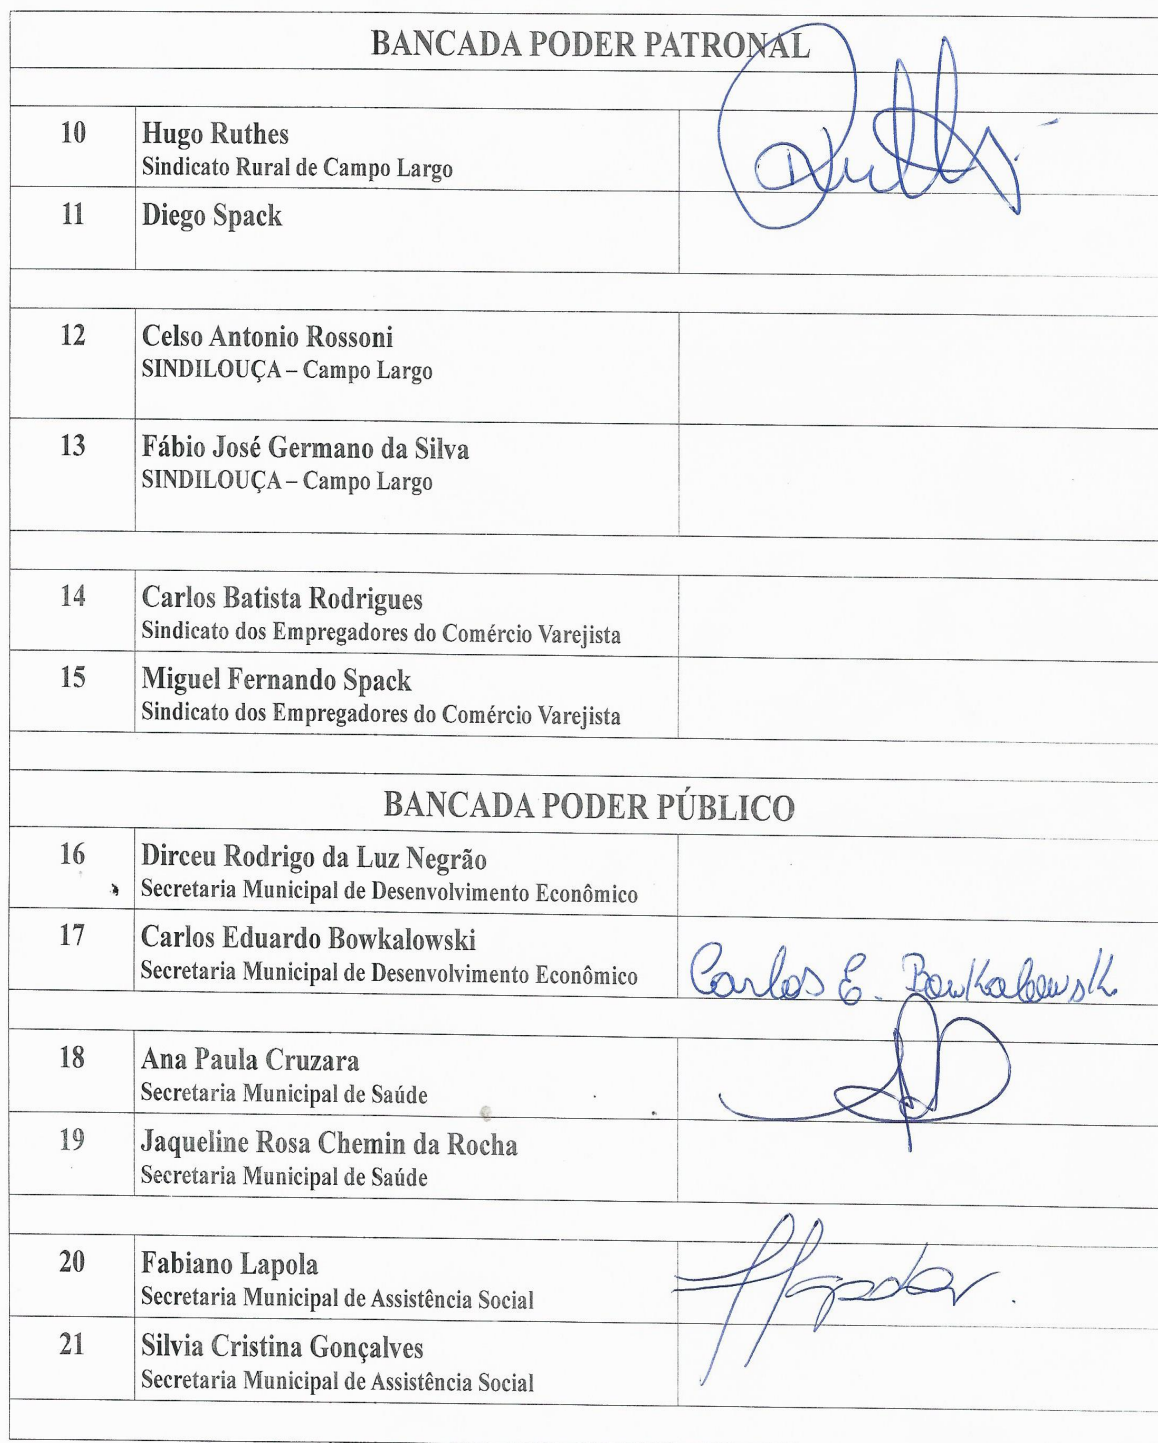 BANCADA PODER PATRONAL
10 Hugo Ruthes
Sindicato Rural de Campo Largo
11 Diego Spack
12 Celso Antonio Rossoni
SINDILOUÇA – Campo Largo
13 Fábio José Germano da Silva
SINDILOUÇA – Campo Largo
14 Carlos Batista Rodrigues
Sindicato dos Empregadores do Comércio Varejista
15 Miguel Fernando Spack
Sindicato dos Empregadores do Comércio Varejista
BANCADA PODER PÚBLICO
16 Dirceu Rodrigo da Luz Negrão
Secretaria Municipal de Desenvolvimento Econômico
17 Carlos Eduardo Bowkalowski
Secretaria Municipal de Desenvolvimento Econômico Carlos E. Bowkalowski
18 Ana Paula Cruzara
Secretaria Municipal de Saúde
19 Jaqueline Rosa Chemin da Rocha
Secretaria Municipal de Saúde
20 Fabiano Lapola
Secretaria Municipal de Assistência Social
21 Silvia Cristina Gonçalves
Secretaria Municipal de Assistência Social